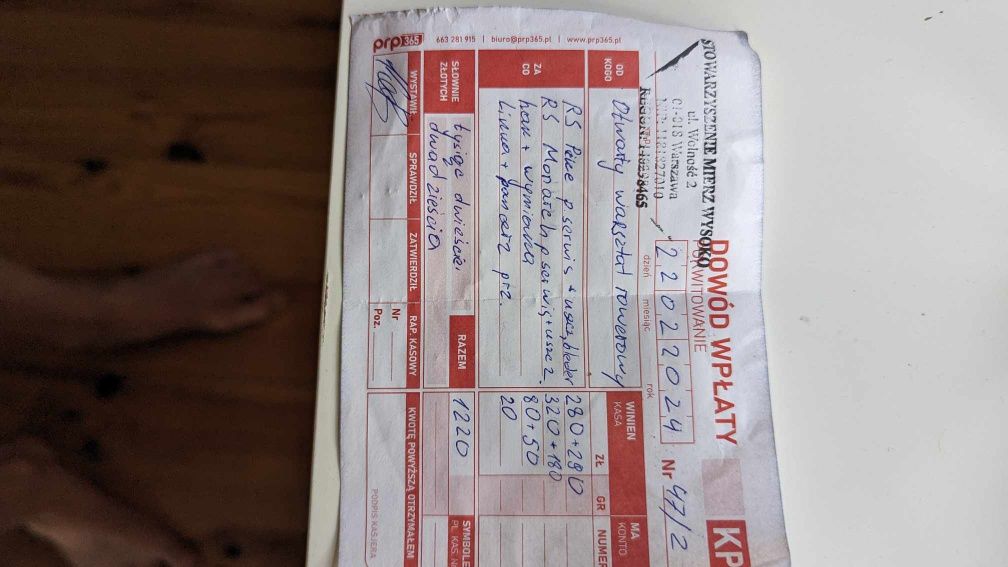 prp365
663 281 915 | biuro@prp365.pl | www.prp365.pl
STOWARZYSZENIE MIERZ WYSOKO
ul. Wolność 2
01-018 Warszawa
DOWÓD WPŁATY
POKWITOWANIE
KP
22 02 2024
Nr 47/2
dzień miesiąc rok
OD KOGO
Otwarty warsztat rowerowy
WINIEN
KASA
MA
KONTO
ZŁ GR NUMER
ZA CO
RS P serwis + uszcz, bleder 280+290
RS Monarch p serwis + uszcz. 320+180
hak + wymiana 80+50
Linka + pancerz prz. 20
SŁOWNIE ZŁOTYCH
tysiąc dwieście
dwadzieścia
RAZEM
1220
SYMBOLE
PL. KAS.
WYSTAWIŁ SPRAWDZIŁ ZATWIERDZIŁ RAP. KASOWY KWOTĘ POWYŻSZĄ OTRZYMAŁEM
Nr
Poz.
PODPIS KASJERA